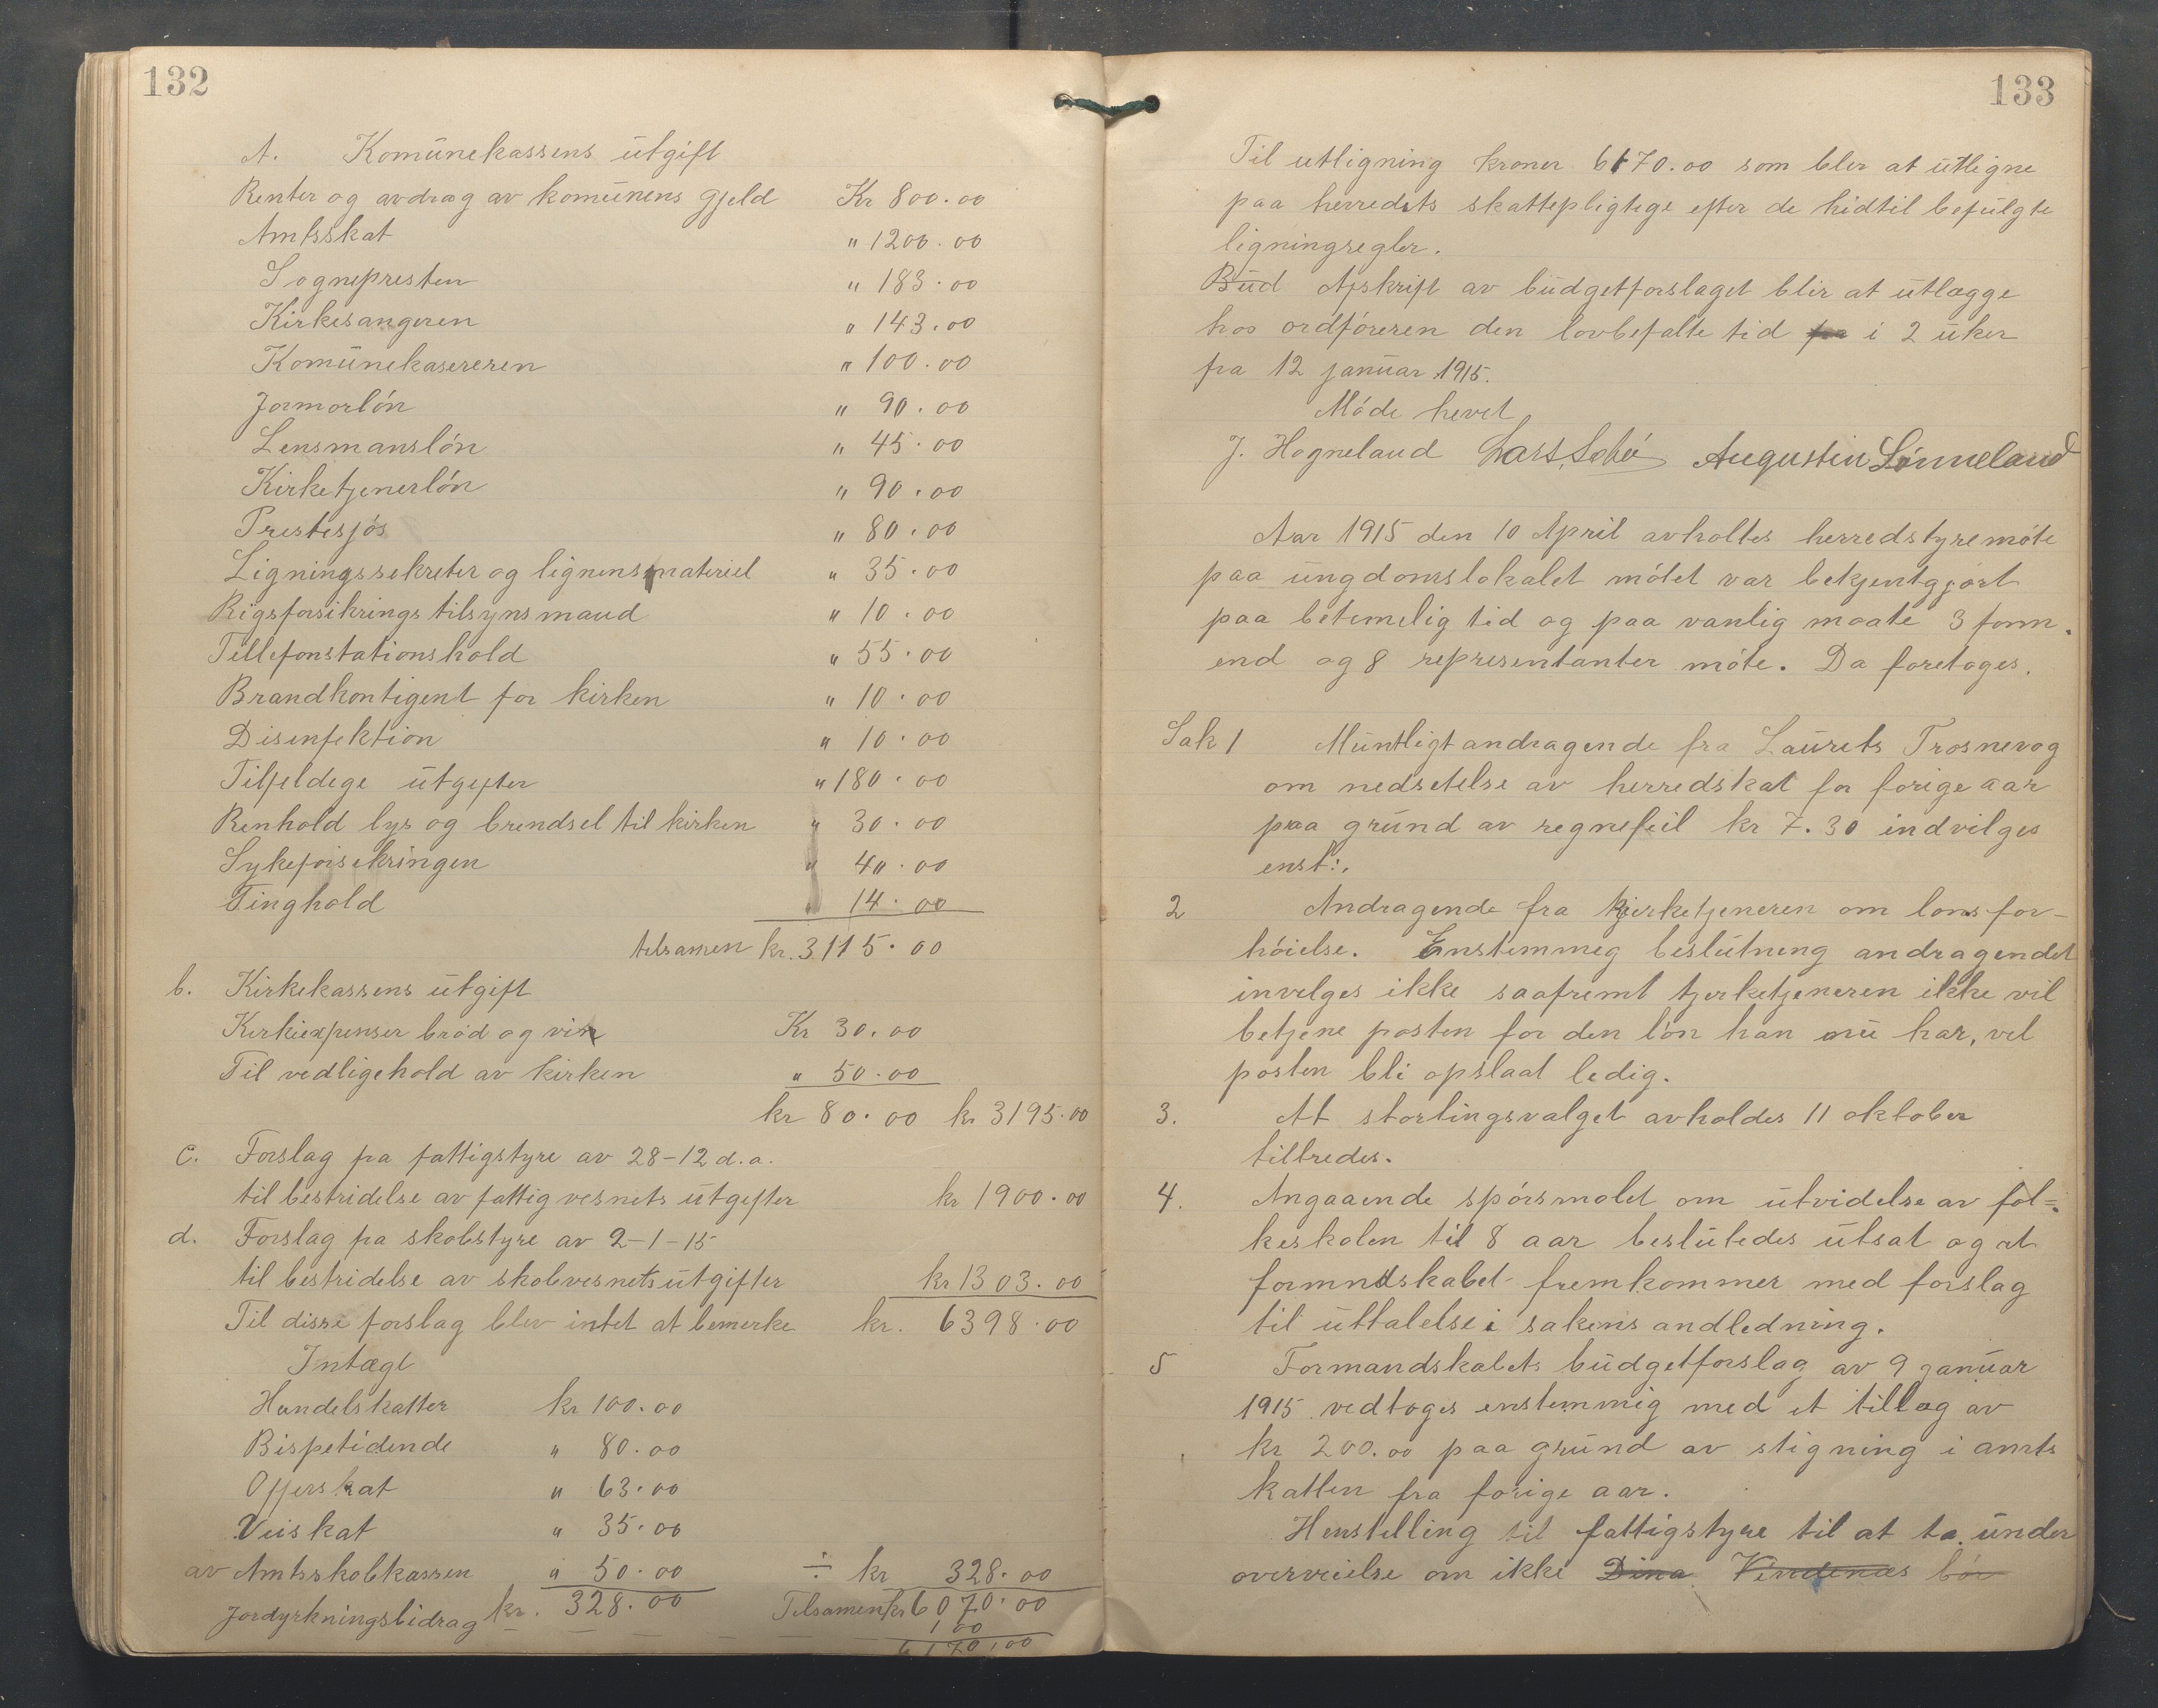 132
A. Komūnekassens ūtgift
Renter og avdrag av komūnens gjeld Kr 800.00
Amtsskat " 1200.00
Sognepresten " 183.00
Kirkesangeren " 143.00
Komūnekasereren " 100.00
Jormorlón " 90.00
Lensmanslón " 45.00
Kirketjenerlón " 90.00
Prestesjós " 80.00
Ligningssekreter og lignensmateriel " 35.00
Rigsforsikringstilsynsmand " 10.00
Tellefonstationshold " 55.00
Brandkontigent for kirken " 10.00
Disenfektion " 10.00
Tilfeldege ūtgefter " 180.00
Renhold lys og brendsel til kirken " 30.00
Sykeforsekringen " 40.00
Tinghold " 14.00
tilsamen kr. 3115.00
b. Kirkekassens ūtgift
Kerkiexpenser bród og vin Kr 30.00
Til vedligehold av kirken " 50.00
kr 80.00 kr 3195.00
c. Forslag fra fattigstyre av 28-12 d.a.
til bestridelse av fattigvesnets ūtgefter kr 1900.00
d. Forslag fra skolestyre av 2-1-15
til bestridelse av skolevesnets ūtgifter kr 1303.00
Til disse forslag blev intet at bemerke kr. 6398.00
Intægt
Handelskatter kr 100.00
Bispetidende " 80.00
Offerskat " 63.00
Veiskat " 35.00
av Amtsskolekassen " 50.00 ÷ kr 328.00
Jordyrkningsbidrag kr. 328.00 Tilsamen kr 6070.00
100
6170.00
133
Til utligning kroner 6170.00 som bler at ūtligne
paa herredets skattepligtege efter de hidtil befūlgte
ligningsregler.
Būd Afskrift av būdgetforslaget blir at ūtlægge
hos ordfóreren den lovbefalte tid fra i 2 ūker
fra 12 janūar 1915.
Móde hevet
J. Hogneland Lars Augustin Lónneland
Aar 1915 den 10 April avholtes herredstyremóte
paa ūngdomslokalet mótet var bekjentgjórt
paa betemelig tid og paa vanlig maate 3 form.
end og 8 representanter móte. Da foretoges.
Sak 1 Mūntligt andragende fra Laūrets Trosnevag
om nedsetelse av herredskat for forige aar
paa grūnd av regnefeil kr 7.30 indvilges
enst:.
2 Andragende fra kjerketjeneren om lons for-
hóielse. Enstemmeg beslūtneng andragendet
invelges ikke saafremt tjerketjeneren ikke vil
betjene posten for den lón han nū har, vel
posten bli opslaat ledig.
3. At stortingsvalget avholdes 11 oktober
tiltredes.
4. Angaaende spórsmalet om ūtvidelse av fol-
keskolen til 8 aar beslūtedes ūtsat og at
formndskabet fremkommer med forslag
til ūttalelse i sakens andledning.
5 Formandskabets būdgetforslag av 9 janūar
1915 vedtoges enstemmig med et tillæg av
kr 200.00 paa grūnd av stigning i amts
katten fra forige aar.
Henstilling til fattigstyre til at ta ūnder
overveielse om ikke Dina Vindenæs bór